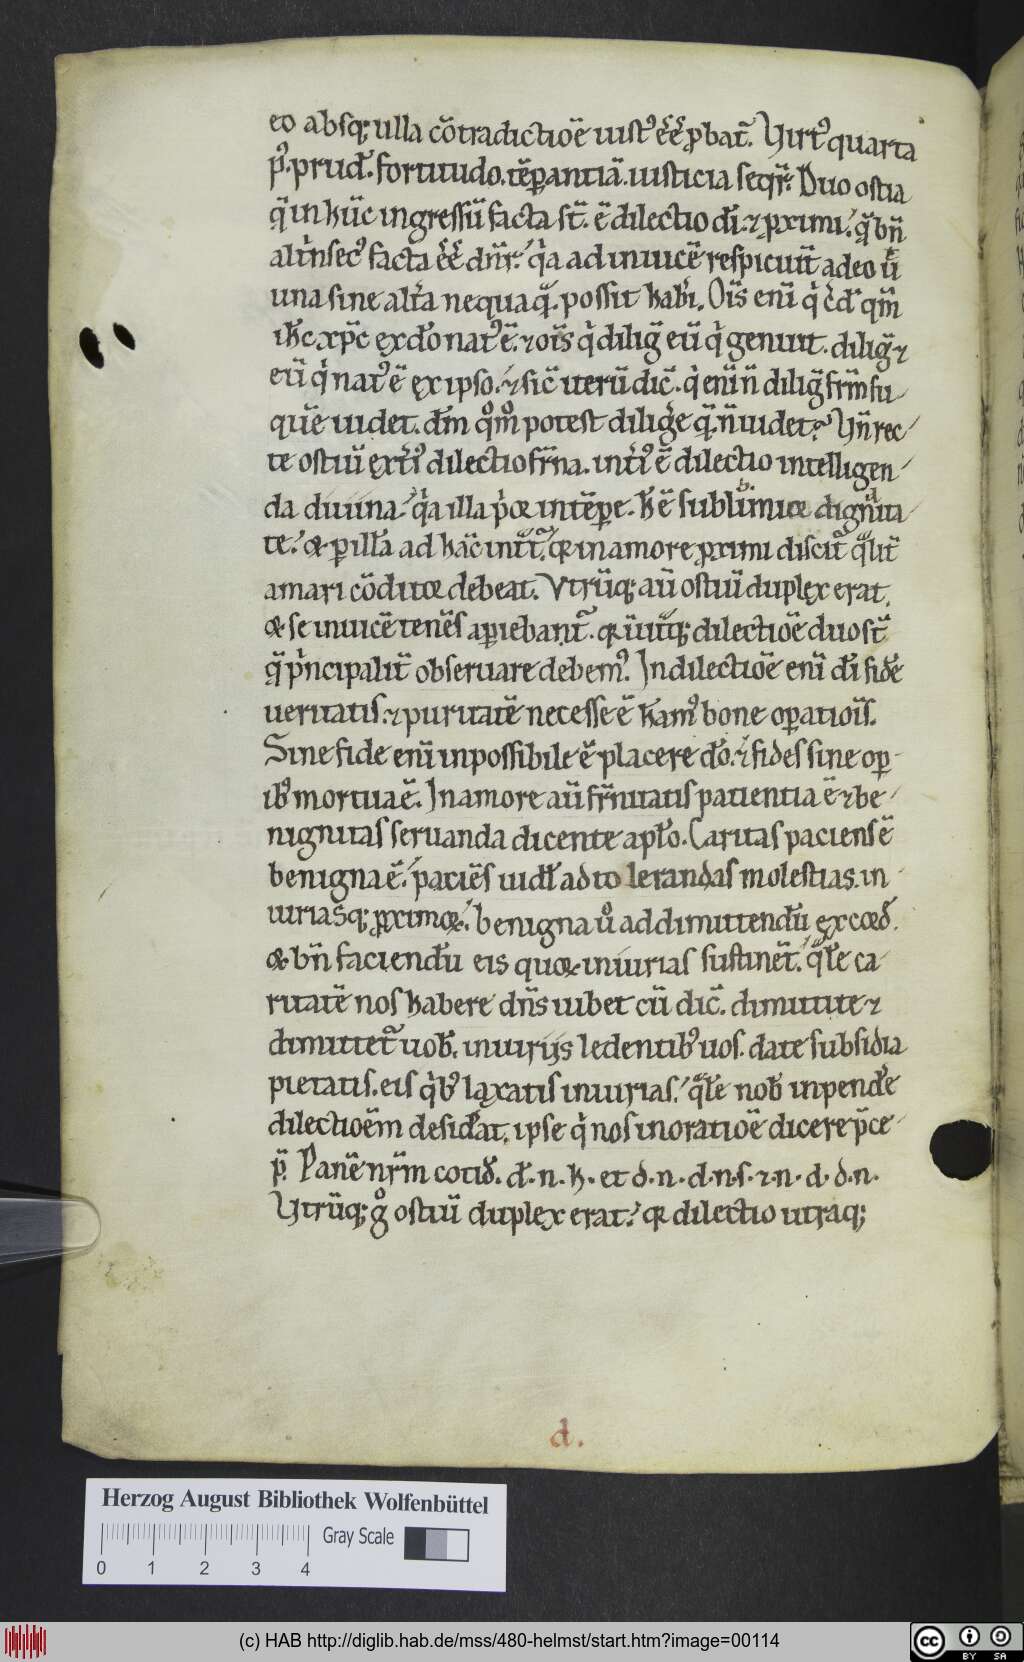 eo absq; ulla cõtradictiõe iustꝰ eẽ ꝓbat᷑. Uirtꝰ quarta
pꝰ. prud̃. fortitudo. tẽꝑantiã. iusticia seqr̃. Duo ostia
q̃ in hũc ingressũ facta st̃. ẽ dilectio dĩ. ⁊ ꝓximi.
facta adinuicẽ respiciũt adeo ũ
una sine altͣa nequaq̃. possit haberi. Oĩs enĩ qͥ c̃d̃ qm̃
ih̃c xp̃c ex d̃o natꝰ ẽ. ⁊ oĩs qͥ dilig̃ eũ qͥ genuit. dilig̃ ⁊
eũ qͥ natꝰ ẽ ex ipso. ⁊ sic̃ iterũ dic̃. qͥ enĩ ñ dilig̃ fr̃m su
quẽ uidet. dm̃ qͦmͦ potest diligͤe q̃ ñ uidet? Uñ rec
te ostiũ extͥꝰ dilectio fr̃na. intͥꝰ ẽ dilectio intelligen
da diuina. qͥa illa
te. ad hãc in amore ꝓximi discit᷑ qͣlit̃
amari cõditor debeat. Vtrũq; aũ ostiũ duplex erat.
& se inuicẽ tenẽs aꝑiebant᷑. dilectiõe duo st̃
q̃ pͥncipalit̃ obseruare debemꝰ. In dilectiõe enĩ dĩ fidẽ
ueritatis. ⁊ puritatẽ necesse ẽ hamꝰ bone oꝑatiõis.
Sine fide enĩ inpossibile ẽ placere d̃o. ⁊ fides sine oꝑ
ibꝰ mortua ẽ. In amore aũ fr̃nitatis patientia ẽ ⁊ be
nignitas seruanda dicente apl̃o. Caritas paciens ẽ
benigna ẽ. paciẽs uidl̃ ad tolerandas molestias. in
iuriasq; ꝓximoꝝ. benigna uͦ ad dimittendũ ex cord̃.
& bñ faciendũ eis quoꝝ iniurias sustinet᷑. qͣl̃e ca
ritatẽ nos habere dñs iubet cũ dic̃. dimittite ⁊
dimittet᷑ uob̃. iniurijs ledentibꝰ uos. date subsidia
pietatis. eis qͥbꝰ laxatis iniurias. qͣl̃e nob̃ inpendͤe
dilectiõem desidͤat. ipse qͥ nos in oratiõe dicere p̃ce
p̃. Panẽ nr̃m cotid̃. d̃. n. h. et d. n. d. n. s. ⁊ n. d. d. n.
Utrũq; gͦ ostiũ duplex erat. dilectio utraq;
d.
Herzog August Bibliothek Wolfenbüttel
Gray Scale
0 1 2 3 4
(c) HAB http://diglib.hab.de/mss/480-helmst/start.htm?image=00114
cc BY SA